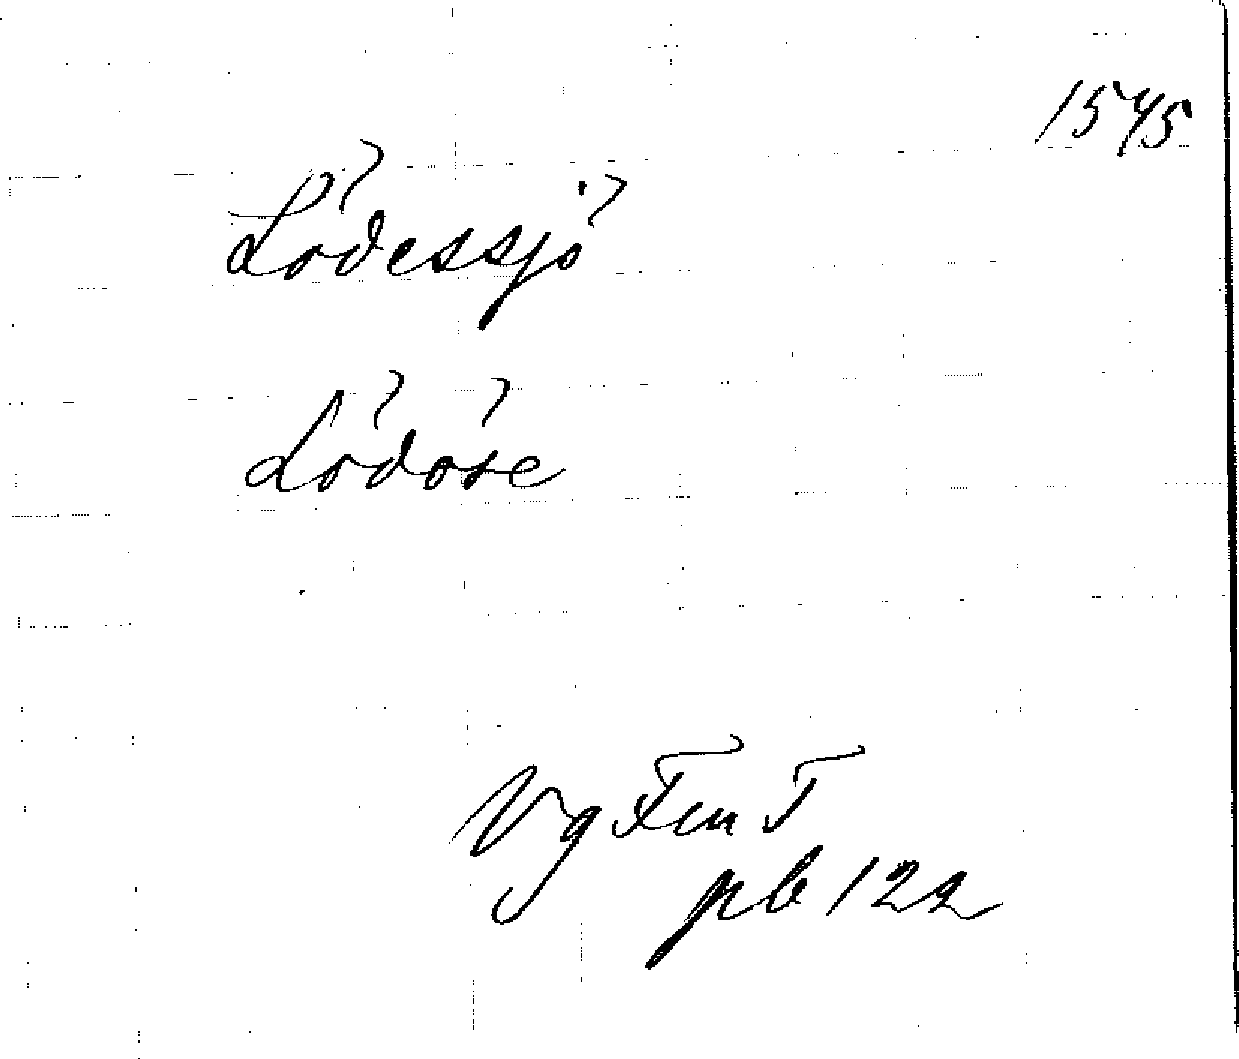 1545
Lödessjö
Lödöse
Vg Fem I
pb 122